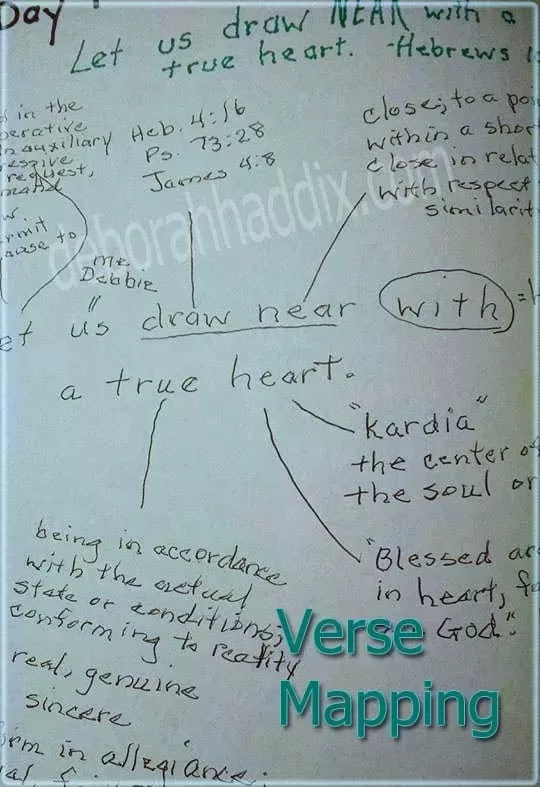 Day
Let us draw NEAR with a
true heart. -Hebrews
in the
auxiliary
request,
Heb. 4:16
Ps. 73:28
James 4:8
close; to a poi
within a shor
close in relat
with respect
similarit
deborahhaddix.com
ause to
me
Debbie
"
et us draw near with =
a true heart.
"kardia"
the center of
the soul or
"Blessed are
in heart, fo
God."
being in accordance
with the actual
state or conditions;
conforming to reality
real, genuine
sincere
irm in allegiance;
Verse
Mapping